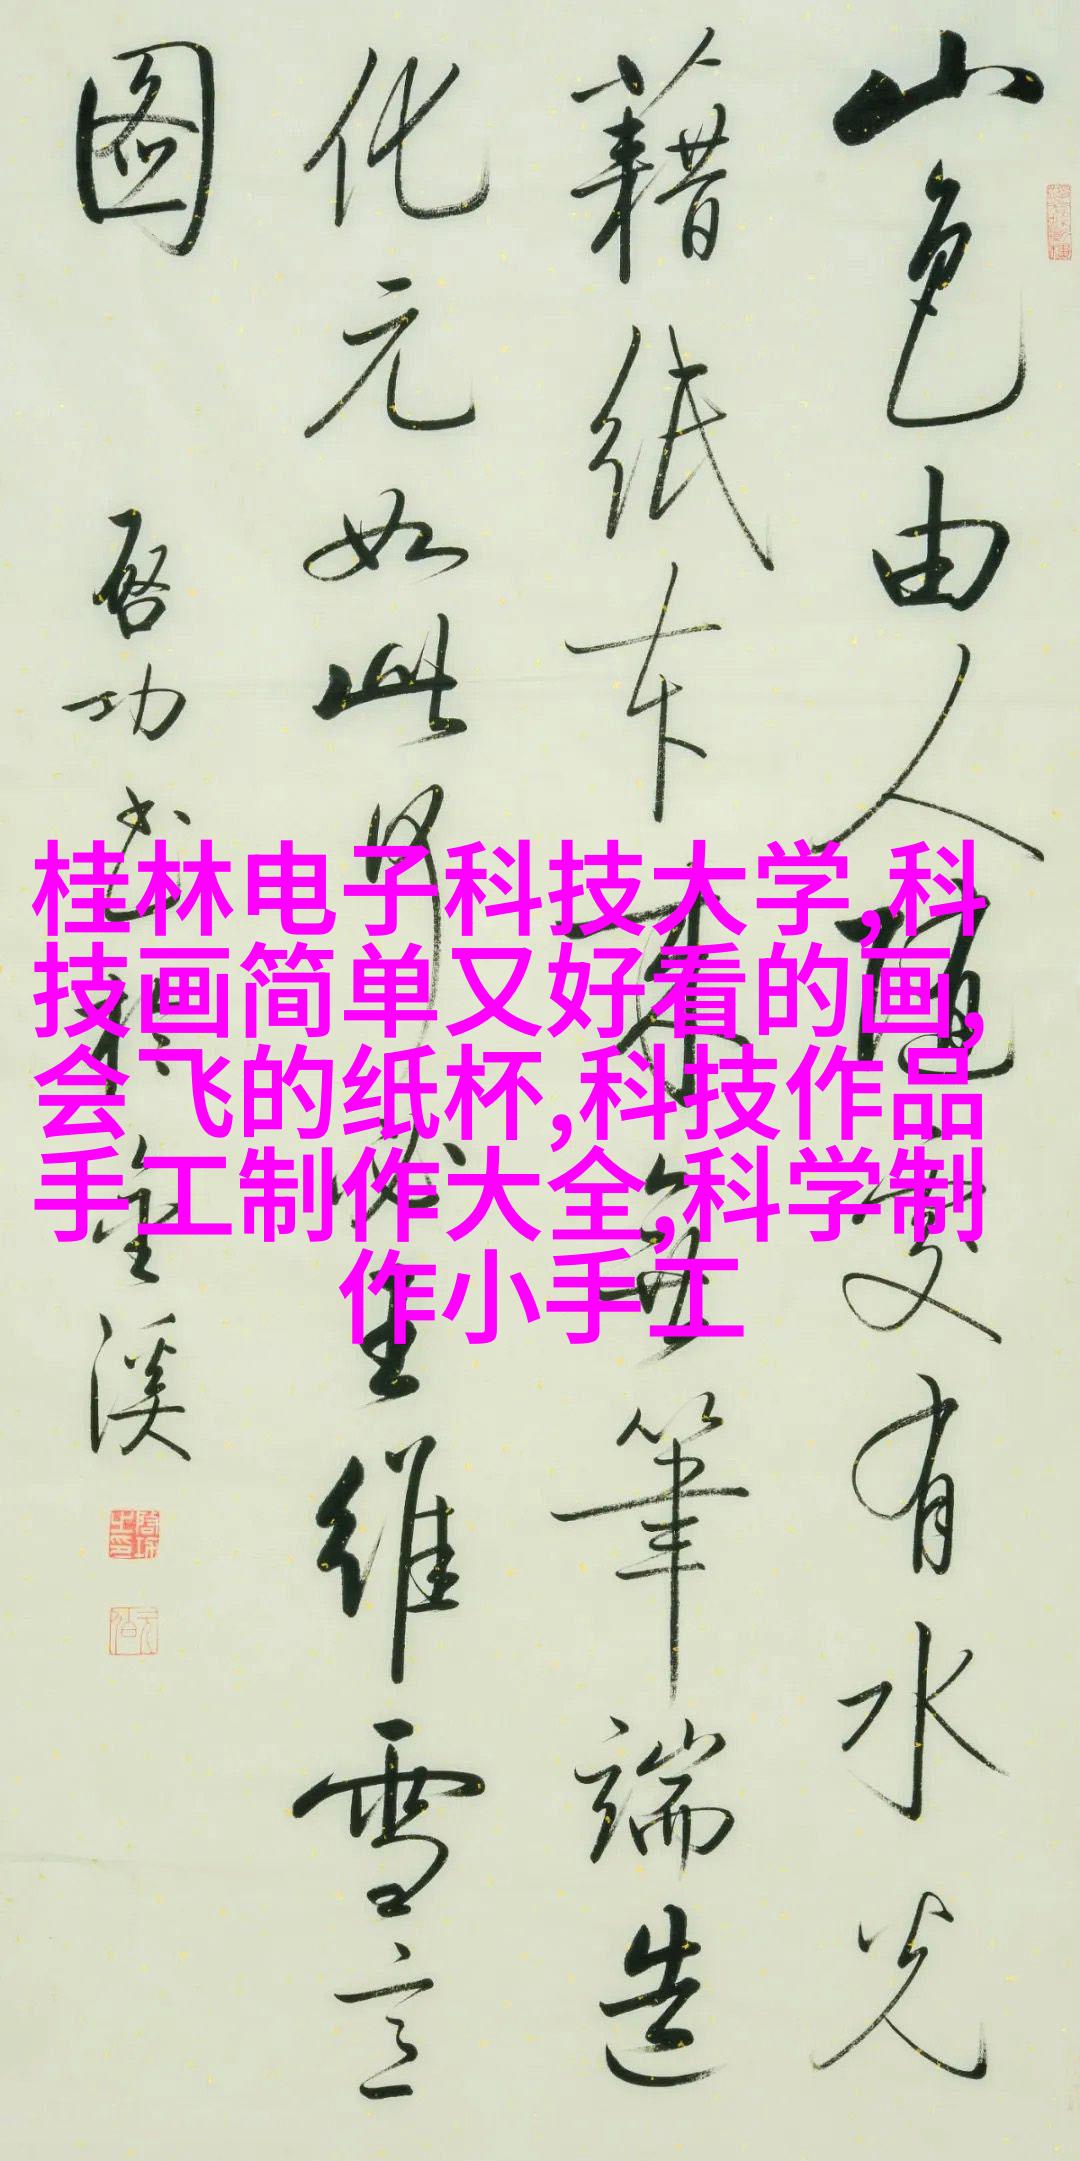 山色由人随有水光
藉纸本无筆端造
化元如此何必王维雪
图
启功
溪
桂林电子科技大学,科
技画简单又好看的画,
会飞的纸杯,科技作品
手工制作大全,科学制
作小手工